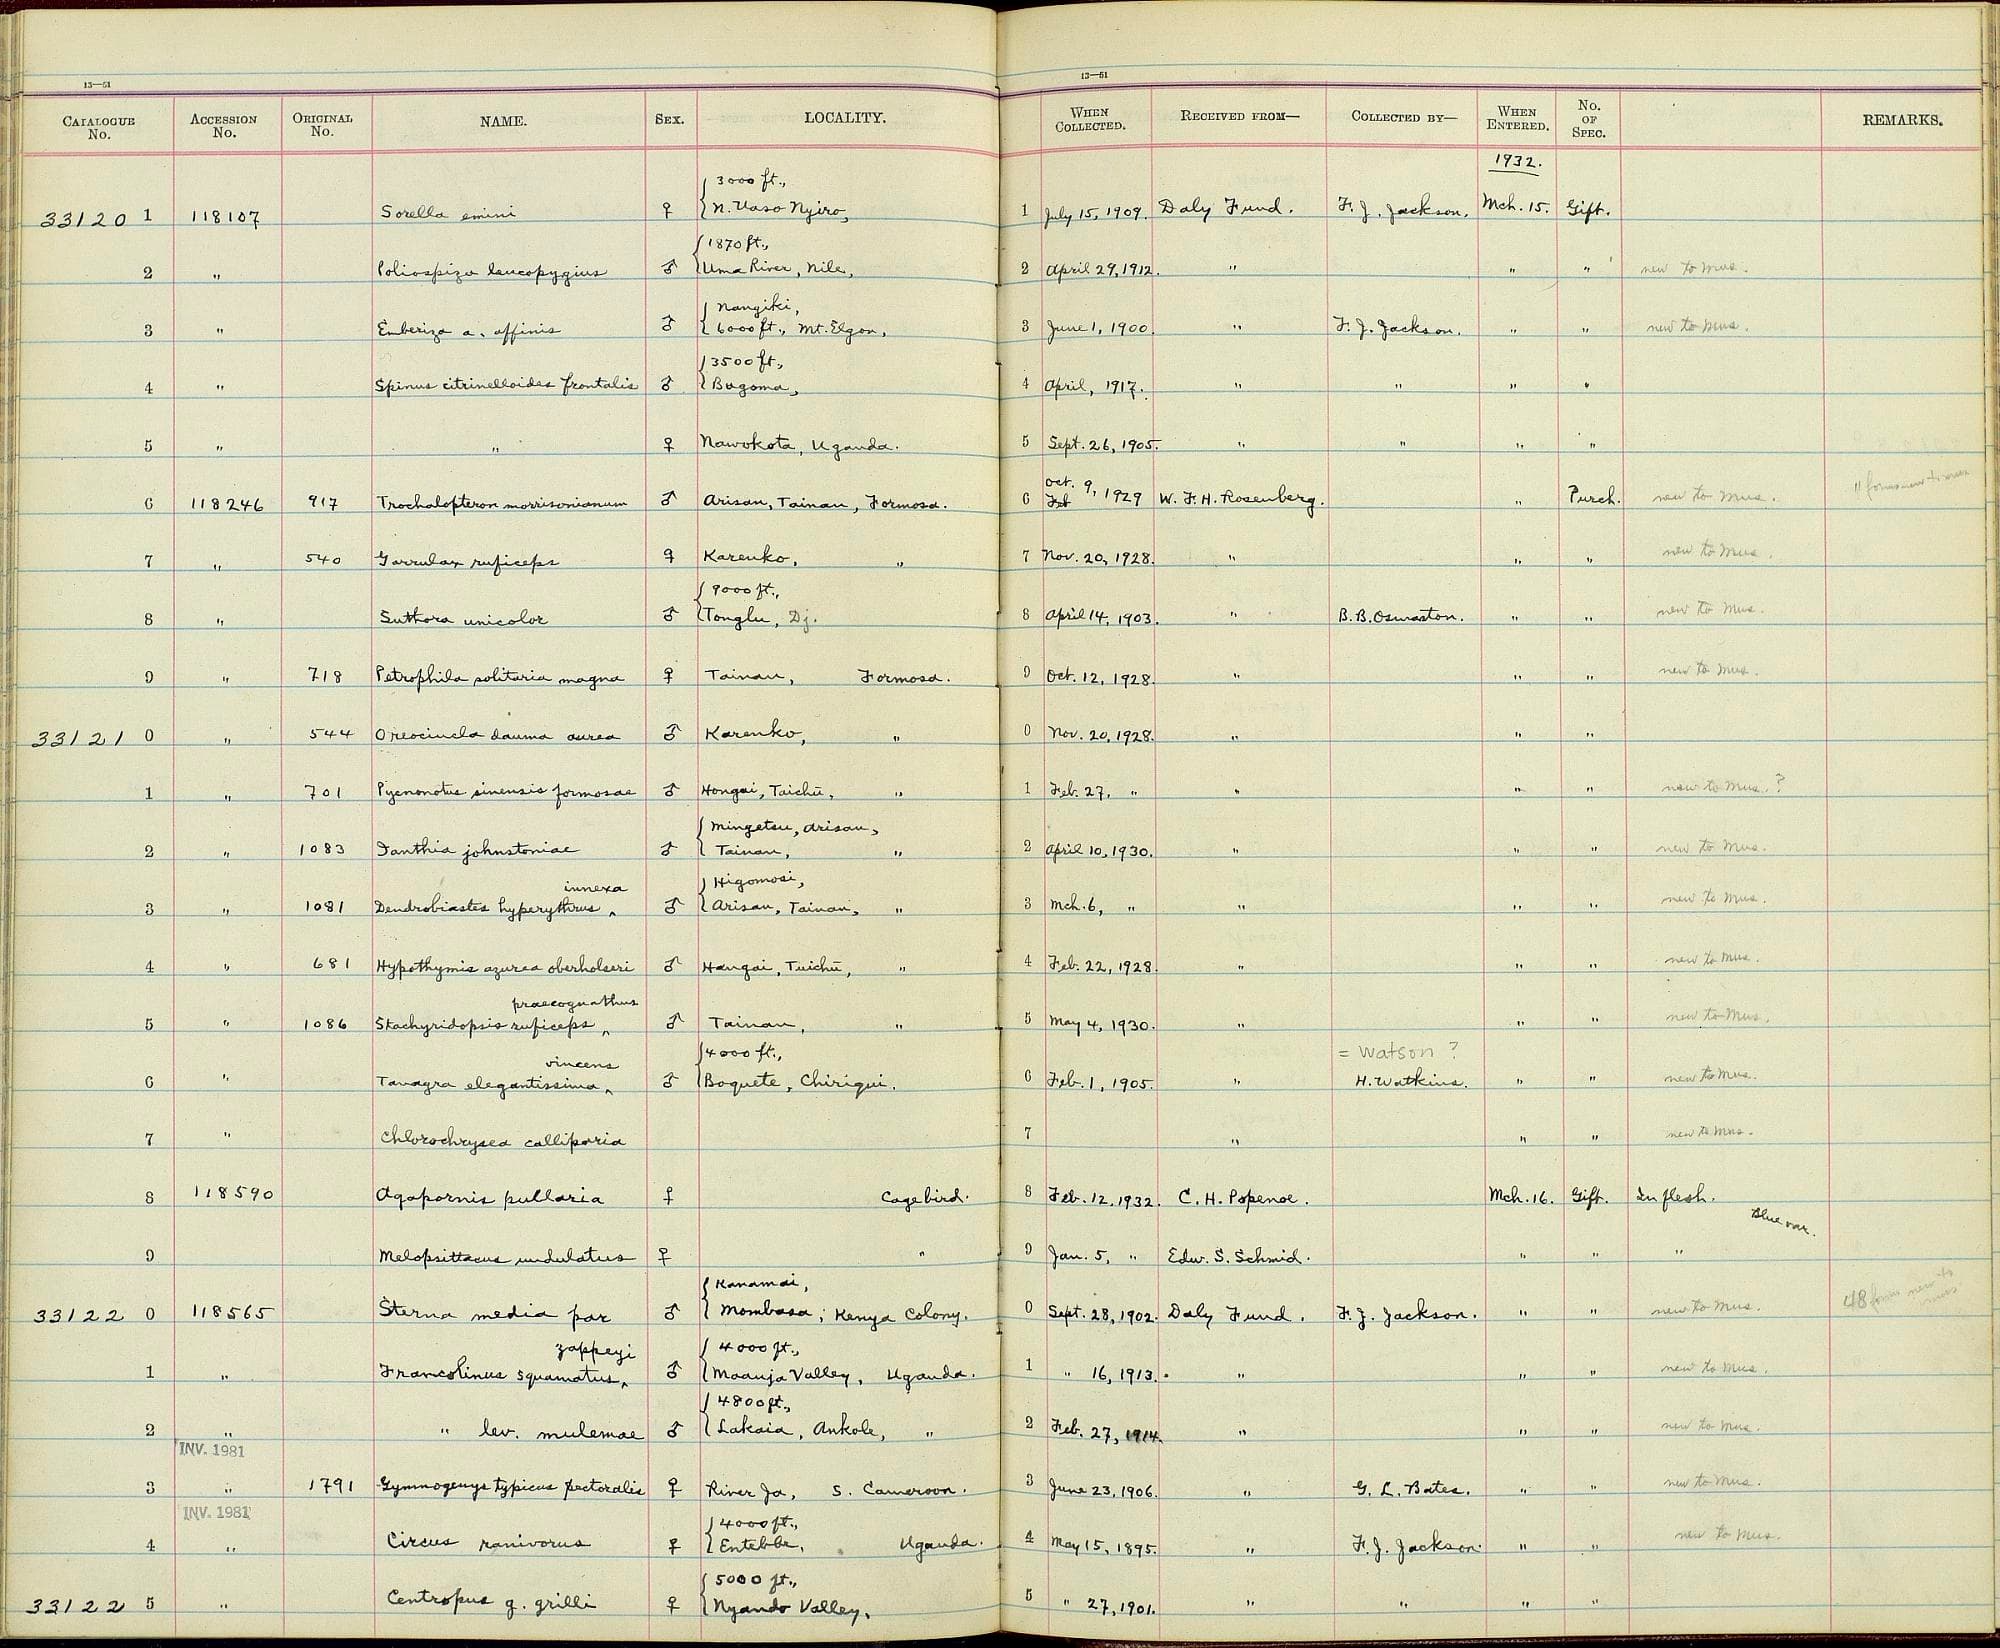 13—51
13—51
CATALOGUE No. ACCESSION No. ORIGINAL No. NAME. SEX. LOCALITY. WHEN COLLECTED. RECEIVED FROM— COLLECTED BY— WHEN ENTERED. No. OF SPEC. REMARKS.
1932.
3000 ft.,
33120 1 118107 Sorella emini ♀ N. Uaso Nyiro, 1 July 15, 1909. Daly Fund. F. J. Jackson. Mch. 15. Gift.
1870 ft.,
2 " Poliospiza leucopygius ♂ Uma River, Nile, 2 April 29, 1912. " " " new to Mus.
Nangiki,
3 " Emberiza a. affinis ♂ 6000 ft., Mt. Elgon, 3 June 1, 1900. " F. J. Jackson. " " new to Mus.
3500 ft.,
4 " Spinus citrinelloides frontalis ♂ Bugoma, 4 April, 1917. " " " "
5 " " ♀ Nawokota, Uganda. 5 Sept. 26, 1905. " " " "
Oct. 9, 1929
6 118246 917 Trochalopteron morrisonianum ♂ Arisan, Tainan, Formosa. 6 Feb W. F. H. Rosenberg. " Purch. new to Mus.
7 " 540 Garrulax ruficeps ♀ Karenko, " 7 Nov. 20, 1928. " " " new to Mus.
9000 ft.,
8 " Suthora unicolor ♂ Tonglu, Dj. 8 April 14, 1903. " B. B. Osmaston. " " new to Mus.
9 " 718 Petrophila solitaria magna ♀ Tainan, Formosa. 9 Oct. 12, 1928. " " " new to Mus.
33121 0 " 544 Oreocincla dauma aurea ♂ Karenko, " 0 Nov. 20, 1928. " " "
1 " 701 Pycnonotus sinensis formosae ♂ Hongai, Taichū, " 1 Feb. 27, " " " " new to Mus. ?
Mingetsu, Arisan,
2 " 1083 Ianthia johnstoniae ♂ Tainan, " 2 April 10, 1930. " " " new to Mus.
innexa Higomosi,
3 " 1081 Dendrobiastes hyperythrus ‸ ♂ Arisan, Tainan, " 3 Mch. 6, " " " " new to Mus.
4 " 681 Hypothymis azurea oberholseri ♂ Hangai, Tuichū, " 4 Feb. 22, 1928. " " " new to Mus.
praecognathus
5 " 1086 Stachyridopsis ruficeps ‸ ♂ Tainan, " 5 May 4, 1930. " " " new to Mus.
vincens 4000 ft., = Watson ?
6 " Tanagra elegantissima ‸ ♂ Boquete, Chiriqui. 6 Feb. 1, 1905. " H. Watkins. " " new to Mus.
7 " Chlorochrysea calliparia 7 " " " new to Mus.
8 118590 Agapornis pullaria ♀ Cage bird. 8 Feb. 12, 1932. C. H. Popenoe. Mch. 16. Gift. In flesh.
Blue var.
9 Melopsittacus undulatus ♀ " 9 Jan. 5, " Edw. S. Schmid. " " "
Kanamai,
33122 0 118565 Sterna media par ♂ Mombasa, Kenya Colony. 0 Sept. 28, 1902. Daly Fund. F. J. Jackson. " " new to Mus. 48 forms new to mus
zappeyi 4000 ft.,
1 " Francolinus squamatus ‸ ♂ Maanja Valley, Uganda. 1 " 16, 1913. " " " new to Mus.
4800 ft.,
2 " " lev. mulemae ♂ Lakaia, Ankole, " 2 Feb. 27, 1914. " " " new to Mus.
INV. 1981
3 " 1791 Gymnogenys typicus pectoralis ♀ River Ja, S. Cameroon. 3 June 23, 1906. " G. L. Bates. " " new to Mus.
INV. 1981 4000 ft.,
4 " Circus ranivorus ♀ Entebbe, Uganda. 4 May 15, 1895. " F. J. Jackson. " " new to Mus.
5000 ft.,
33122 5 " Centropus g. grilli ♀ Nyando Valley, 5 " 27, 1901. " " " "